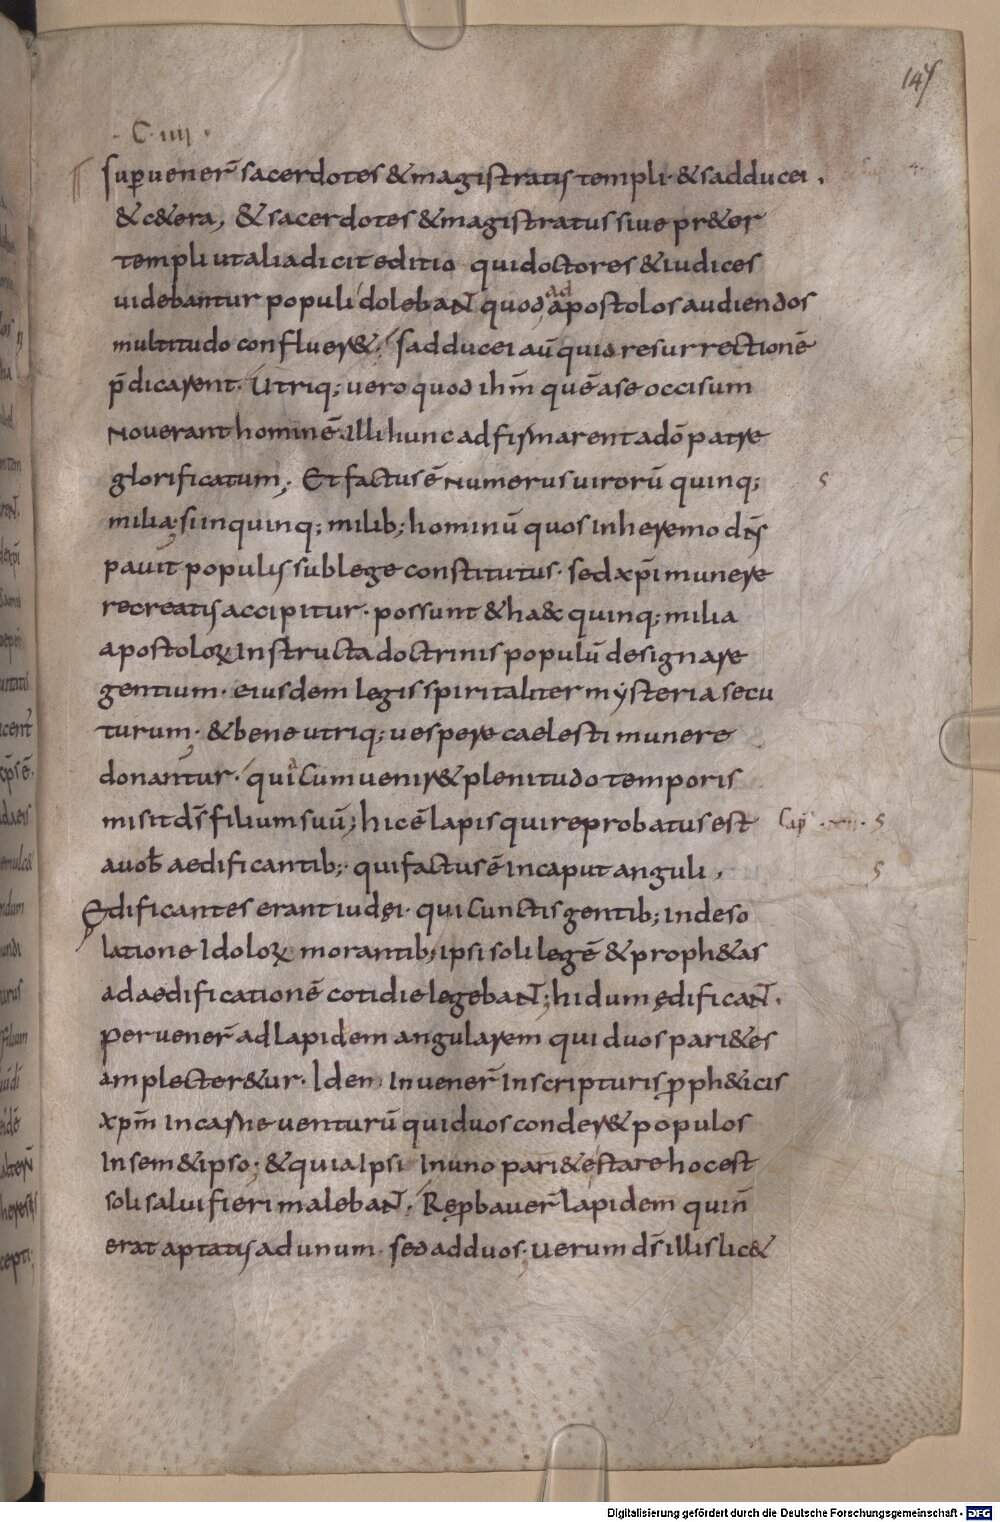 147
C·IIII·
Sup̱uener̄ sacerdotes & magistratus templi· & sadducei,
& c&era, & sacerdotes & magistratus siue pr&er
templi ut alia dicit editio qui doctores & iudices
uidebantur populi dolebaNT quod ad apostolos audiendos
multitudo conflueret&. Sadducei aū quia resurrectionē
p̄dicarent. Utriq; uero quod ihm̄ quē a se occisum
nouerant hominē. Illi hunc adfirmarent a dō patre
glorificatum. Et factus ē numerus uirorū quinq;
milia; si in quinq; milib; hominū quos in heremo dn̄s
pauit populus sub lege constitutus· sed xp̄i munere
recreatus accipitur· possunt & haec quinq; milia
apostoloꝝ instructa doctrinis populū designare
gentium· eiusdem legis spiritaliter mysteria secu
turum· & bene utriq; uespere caelesti munere
donantur· quia cum uenir& plenitudo temporis
misit ds̄ filium suū; hic ē lapis qui reprobatus est
a uob̄ aedificantib;· qui factus ē in caput anguli,
Edificantes erant iudęi· qui cunctis gentib; in deso
latione idoloꝝ morantib; ipsi soli legē & proph&as
ad aedificationē cotidie legebaNT; hi dum ędificaNT.
peruener̄ ad lapidem angularem qui duos pari&es
amplecter&ur· Idem inuener̄ in scripturis ꝓph&icis
xpm̄ in carne uenturū qui duos conder& populos
in sem&ipso; & quia ipsi in uno pari&e stare hoc est
soli salui fieri malebaNT. Reꝓbauer̄ lapidem qui n̄
erat aptatus ad unum· sed ad duos· Uerum ds̄ illis lic&
Digitalisierung gefördert durch die Deutsche Forschungsgemeinschaft - DFG